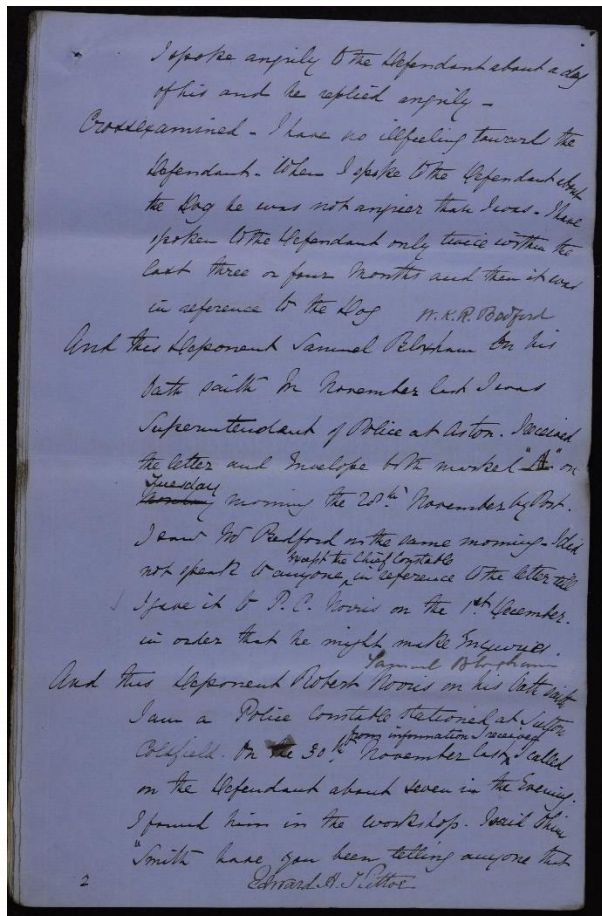 I spoke angrily to the Defendant about a dog
of his and he replied angrily -
Crossexamined - I have no illfeeling toward the
Defendant. When I spoke to the Defendant about
the Dog he was not angrier than I was - I have
spoken to the Defendant only twice within the
last three or four Months and then it was
in reference to the Dog W. K. R. Bedford
And this Deponent Samuel Bloxham on his
Oath saith In November last I was
Superintendant of Police at Aston. I received
the letter and Envelope both marked "A" on
Tuesday
Monday morning the 28th November by Post.
I saw Mr Bedford on the same morning - I did
except the Chief Constable
not speak to anyone in reference to the letter till
I gave it to P. C. Norris on the 1st December.
in order that he might make Enquiries.
Samuel Bloxham
And this Deponent Robert Norris on his Oath saith
I am a Police Constable stationed at Sutton
from information I received
Coldfield. On the 30th November last I called
on the Defendant about seven in the Evening.
I found him in the workshop. I said to him
"Smith have you been telling anyone that
2 Edward A.